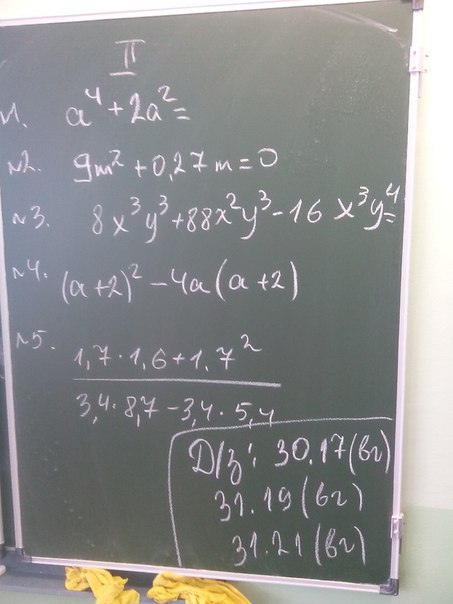 II
№1. a⁴ + 2a² =
№2. 9m² + 0,27m = 0
№3. 8x³y³ + 88x²y³ - 16x³y⁴ =
№4. (a+2)² - 4a(a+2)
№5. 1,7 · 1,6 + 1,7²
3,4 · 8,7 - 3,4 · 5,4
Д/з: 30.17(вг)
31.19(вг)
31.21(вг)